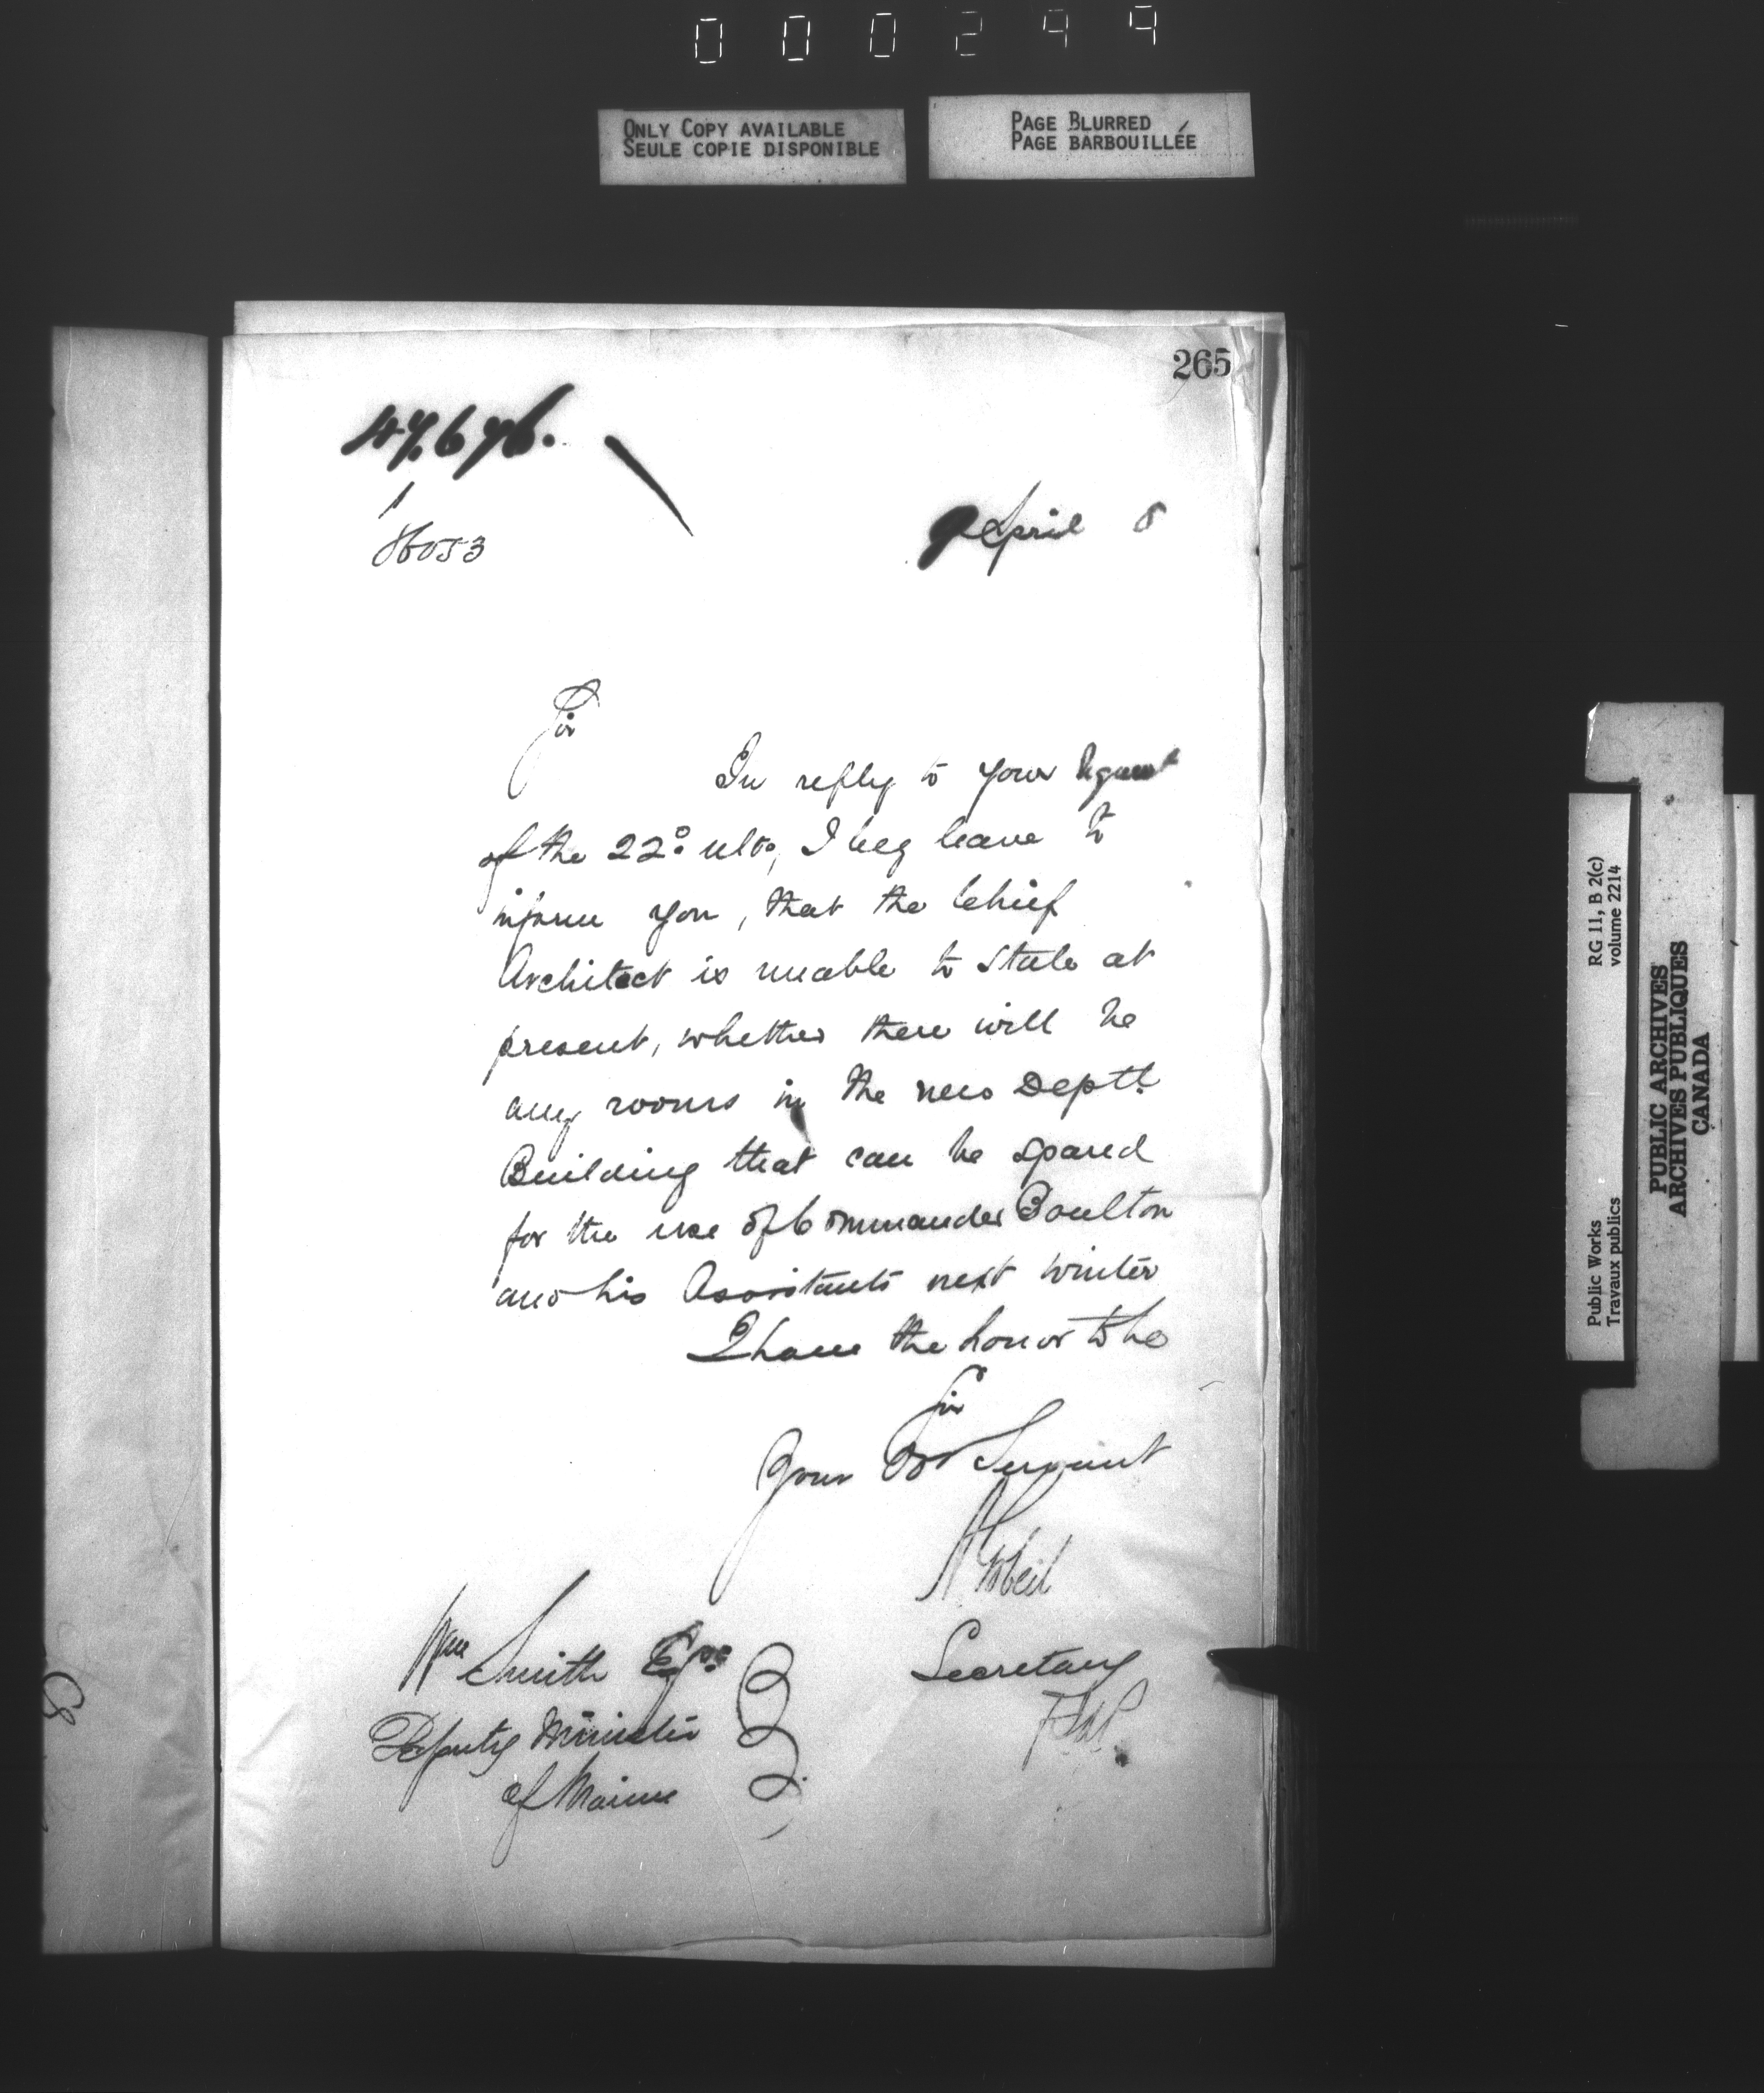 000299
ONLY COPY AVAILABLE
SEULE COPIE DISPONIBLE
PAGE BLURRED
PAGE BARBOUILLÉE
265
47.676.
1
86053
9 April 8
Sir
In reply to your request
of the 22° ulto, I beg leave to
inform you, that the Chief
Architect is unable to state at
present, whether there will be
any rooms in the new Deptl
Building that can be spared
for the use of Commander Boulton
and his Assistants next winter
I have the honor to be
Sir
Your Obt Servant
A Gobeil
Secretary
Wm Smith Esqr
Deputy Minister
of Marine
Public Works RG 11, B 2(c)
Travaux publics volume 2214
PUBLIC ARCHIVES
ARCHIVES PUBLIQUES
CANADA